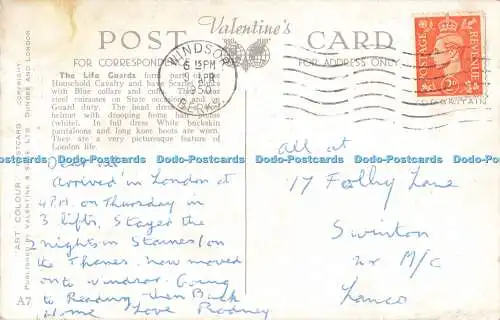 Valentine's
POST CARD
FOR CORRESPONDENCE
FOR ADDRESS ONLY
WINDSOR
6 15 PM
9 APR
1950
BERKS
POSTAGE REVENUE
2D
The Life Guards form part of the
Household Cavalry and wear Scarlet tunics
with Blue collar and cuffs. They
steel cuirasses on State occasions and on
Guard duty. The head dress
helmet with drooping horse hair plume
(white). In full dress White buckskin
pantaloons and long knee boots are worn.
They are a very picturesque feature of
London life.
"ART COLOUR" POSTCARD COPYRIGHT
PUBLISHED BY VALENTINE & SONS, LTD., DUNDEE AND LONDON
A7
Dear all
Arrived in London at
4 P.M. on Thursday in
3 lifts, stayed the
2 nights in Staines/on
the Thames. Now moved
onto Windsor. Going
to Reading then Back
Home Love Rodney
All at
17 Folly Lane
Swinton
nr M/c
Lancs
Dodo-Postcards Dodo-Postcards Dodo-Postcards Dodo-Postcards Dodo-Postcards